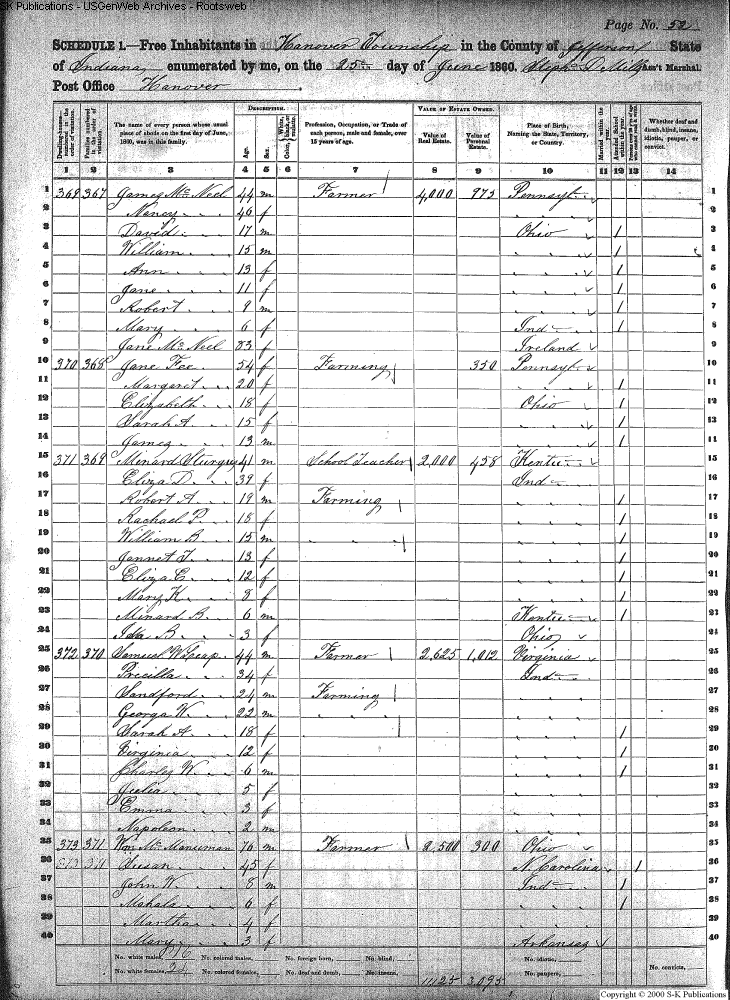 S-K Publications - USGenWeb Archives - Rootsweb
Page No. 52
SCHEDULE 1.—Free Inhabitants in Hanover Township in the County of Jefferson State
of Indiana enumerated by me, on the 25th day of June 1860. Ass't Marshal.
Post Office Hanover
DESCRIPTION. VALUE OF ESTATE OWNED.
Dwelling-houses—numbered in the order of visitation. Families numbered in the order of visitation. The name of every person whose usual place of abode on the first day of June, 1860, was in this family. Age. Sex. Color, White, black, or mulatto. Profession, Occupation, or Trade of each person, male and female, over 15 years of age. Value of Real Estate. Value of Personal Estate. Place of Birth, Naming the State, Territory, or Country. Married within the year. Attended School within the year. Whether deaf and dumb, blind, insane, idiotic, pauper, or convict.
1 2 3 4 5 6 7 8 9 10 11 12 13 14
1 369 367 James McNeel 44 m Farmer 4,000 975 Pennsyl 1
2 Nancy 46 f " " 2
3 David 17 m Ohio / 3
4 William 15 m " " / 4
5 Ann 13 f " " / 5
6 Jane 11 f " " / 6
7 Robert 9 m " " / 7
8 Mary 6 f Ind / 8
9 Jane McNeel 83 f Ireland 9
10 370 368 Jane Fee 54 f Farming 350 Pennsyl 10
11 Margaret 20 f " " / 11
12 Elizabeth 18 f Ohio / 12
13 Sarah A 15 f " " / 13
14 James 13 m " " / 14
15 371 369 Minard Sturgus 41 m School Teacher 2,000 458 Kentu 15
16 Eliza D 39 f Ind 16
17 Robert A 19 m Farming " " / 17
18 Rachael P. 18 f " " / 18
19 William B 15 m " " " " / 19
20 Jannet J. 13 f " " / 20
21 Eliza C. 12 f " " / 21
22 Mary K 8 f " " / 22
23 Minard B. 6 m Kentu / 23
24 Ida B. 3 f Ohio 24
25 372 370 Samuel W 44 m Farmer 2,625 1,012 Virginia 25
26 Precilla 34 f Ind 26
27 Sandford 24 m Farming " " 27
28 George W. 22 m " " " " 28
29 Sarah A. 18 f " " / 29
30 Virginia 12 f " " / 30
31 Charles W. 6 m " " / 31
32 Julia 5 f " " 32
33 Emma 3 f " " 33
34 Napoleon 2 m " " 34
35 373 371 Wm McManuman 76 m Farmer 2,500 300 Ohio 35
36 373 371 Susan 45 f N. Carolina / 36
37 John W. 8 m Ind / 37
38 Mahala 6 f " " / 38
39 Martha 4 f " " 39
40 Mary 3 f Arkansas 40
No. white males, 16 No. colored males, No. foreign born, No. blind, No. idiotic, No. convicts,
No. white females, 24 No. colored females, No. deaf and dumb, No. insane, 11125 3,095 No. paupers,
Copyright © 2000 S-K Publications